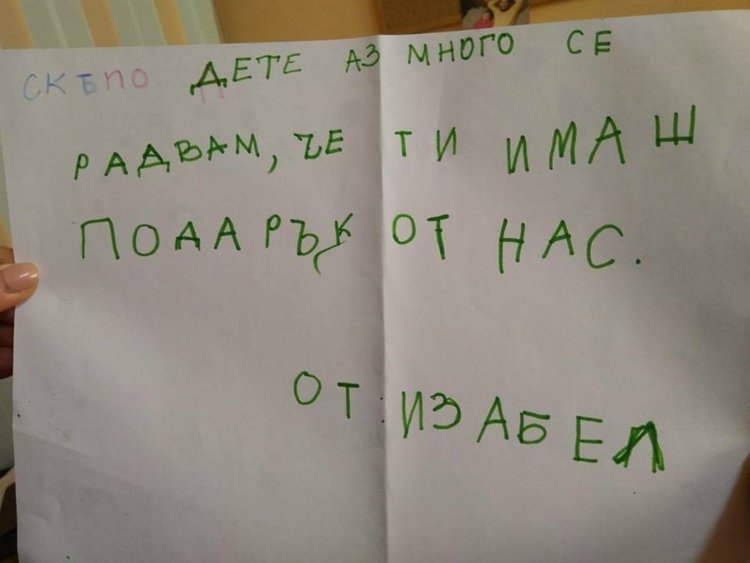 СКЪПО ДЕТЕ АЗ МНОГО СЕ
РАДВАМ, ЧЕ ТИ ИМАШ
ПОДАРЪК ОТ НАС.
ОТ ИЗАБЕЛ